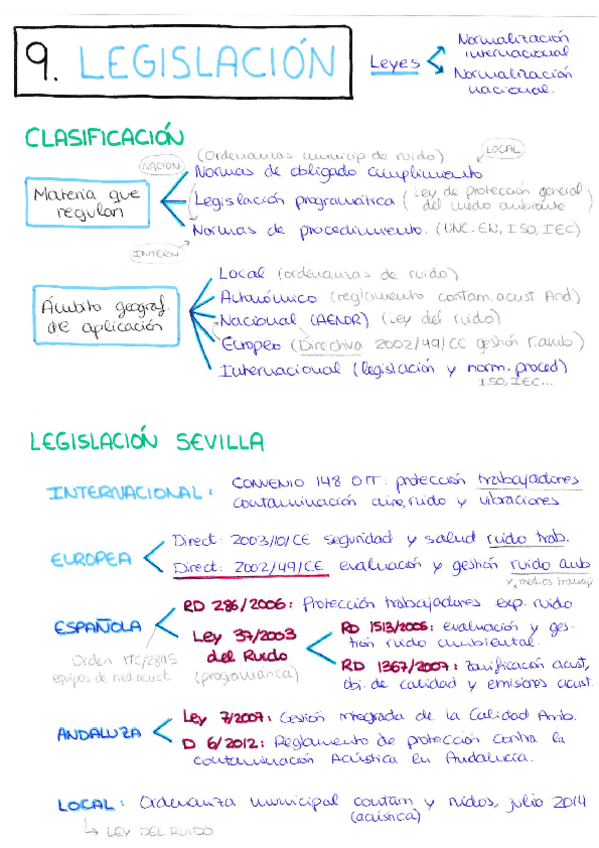 9. LEGISLACIÓN
Leyes
Normalización
internacional
Normalización
nacional.
CLASIFICACIÓN
NACION
(Ordenanzas municip de ruido)
LOCAL
Materia que
regulan
Normas de obligado cumplimiento
Legislación programática (Ley de protección general
del medio ambiente)
Normas de procedimiento. (UNE.EN, ISO, IEC)
INTERN
Ámbito geograf.
de aplicación
Local (ordenanzas de ruido)
Autonómico (reglamento contam. acust And)
Nacional (AENOR) (Ley del ruido)
Europeo (Directiva 2002/49/CE gestión r.amb)
Internacional (legislación y norm. proced)
ISO, IEC...
LEGISLACIÓN SEVILLA
INTERNACIONAL:
CONVENIO 148 OIT: protección trabajadores
contaminación aire, ruido y vibraciones
EUROPEA
Direct: 2003/10/CE seguridad y salud ruido trab.
Direct: 2002/49/CE evaluación y gestión ruido amb
medios transp
ESPAÑOLA
RD 286/2006: Protección trabajadores exp. ruido
Ley 37/2003
del Ruido
(programática)
RD 1513/2005: evaluación y ges-
tión ruido ambiental.
RD 1367/2007: Zonificación acúst,
obj. de calidad y emisiones acust.
Orden ITC/2845
equipos de med. acust.
ANDALUZA
Ley 7/2007: Gestión integrada de la Calidad Amb.
D 6/2012: Reglamento de protección contra la
contaminación Acústica en Andalucía.
LOCAL: Ordenanza municipal contam y ruidos, julio 2014
(acústica)
↳ LEY DEL RUIDO